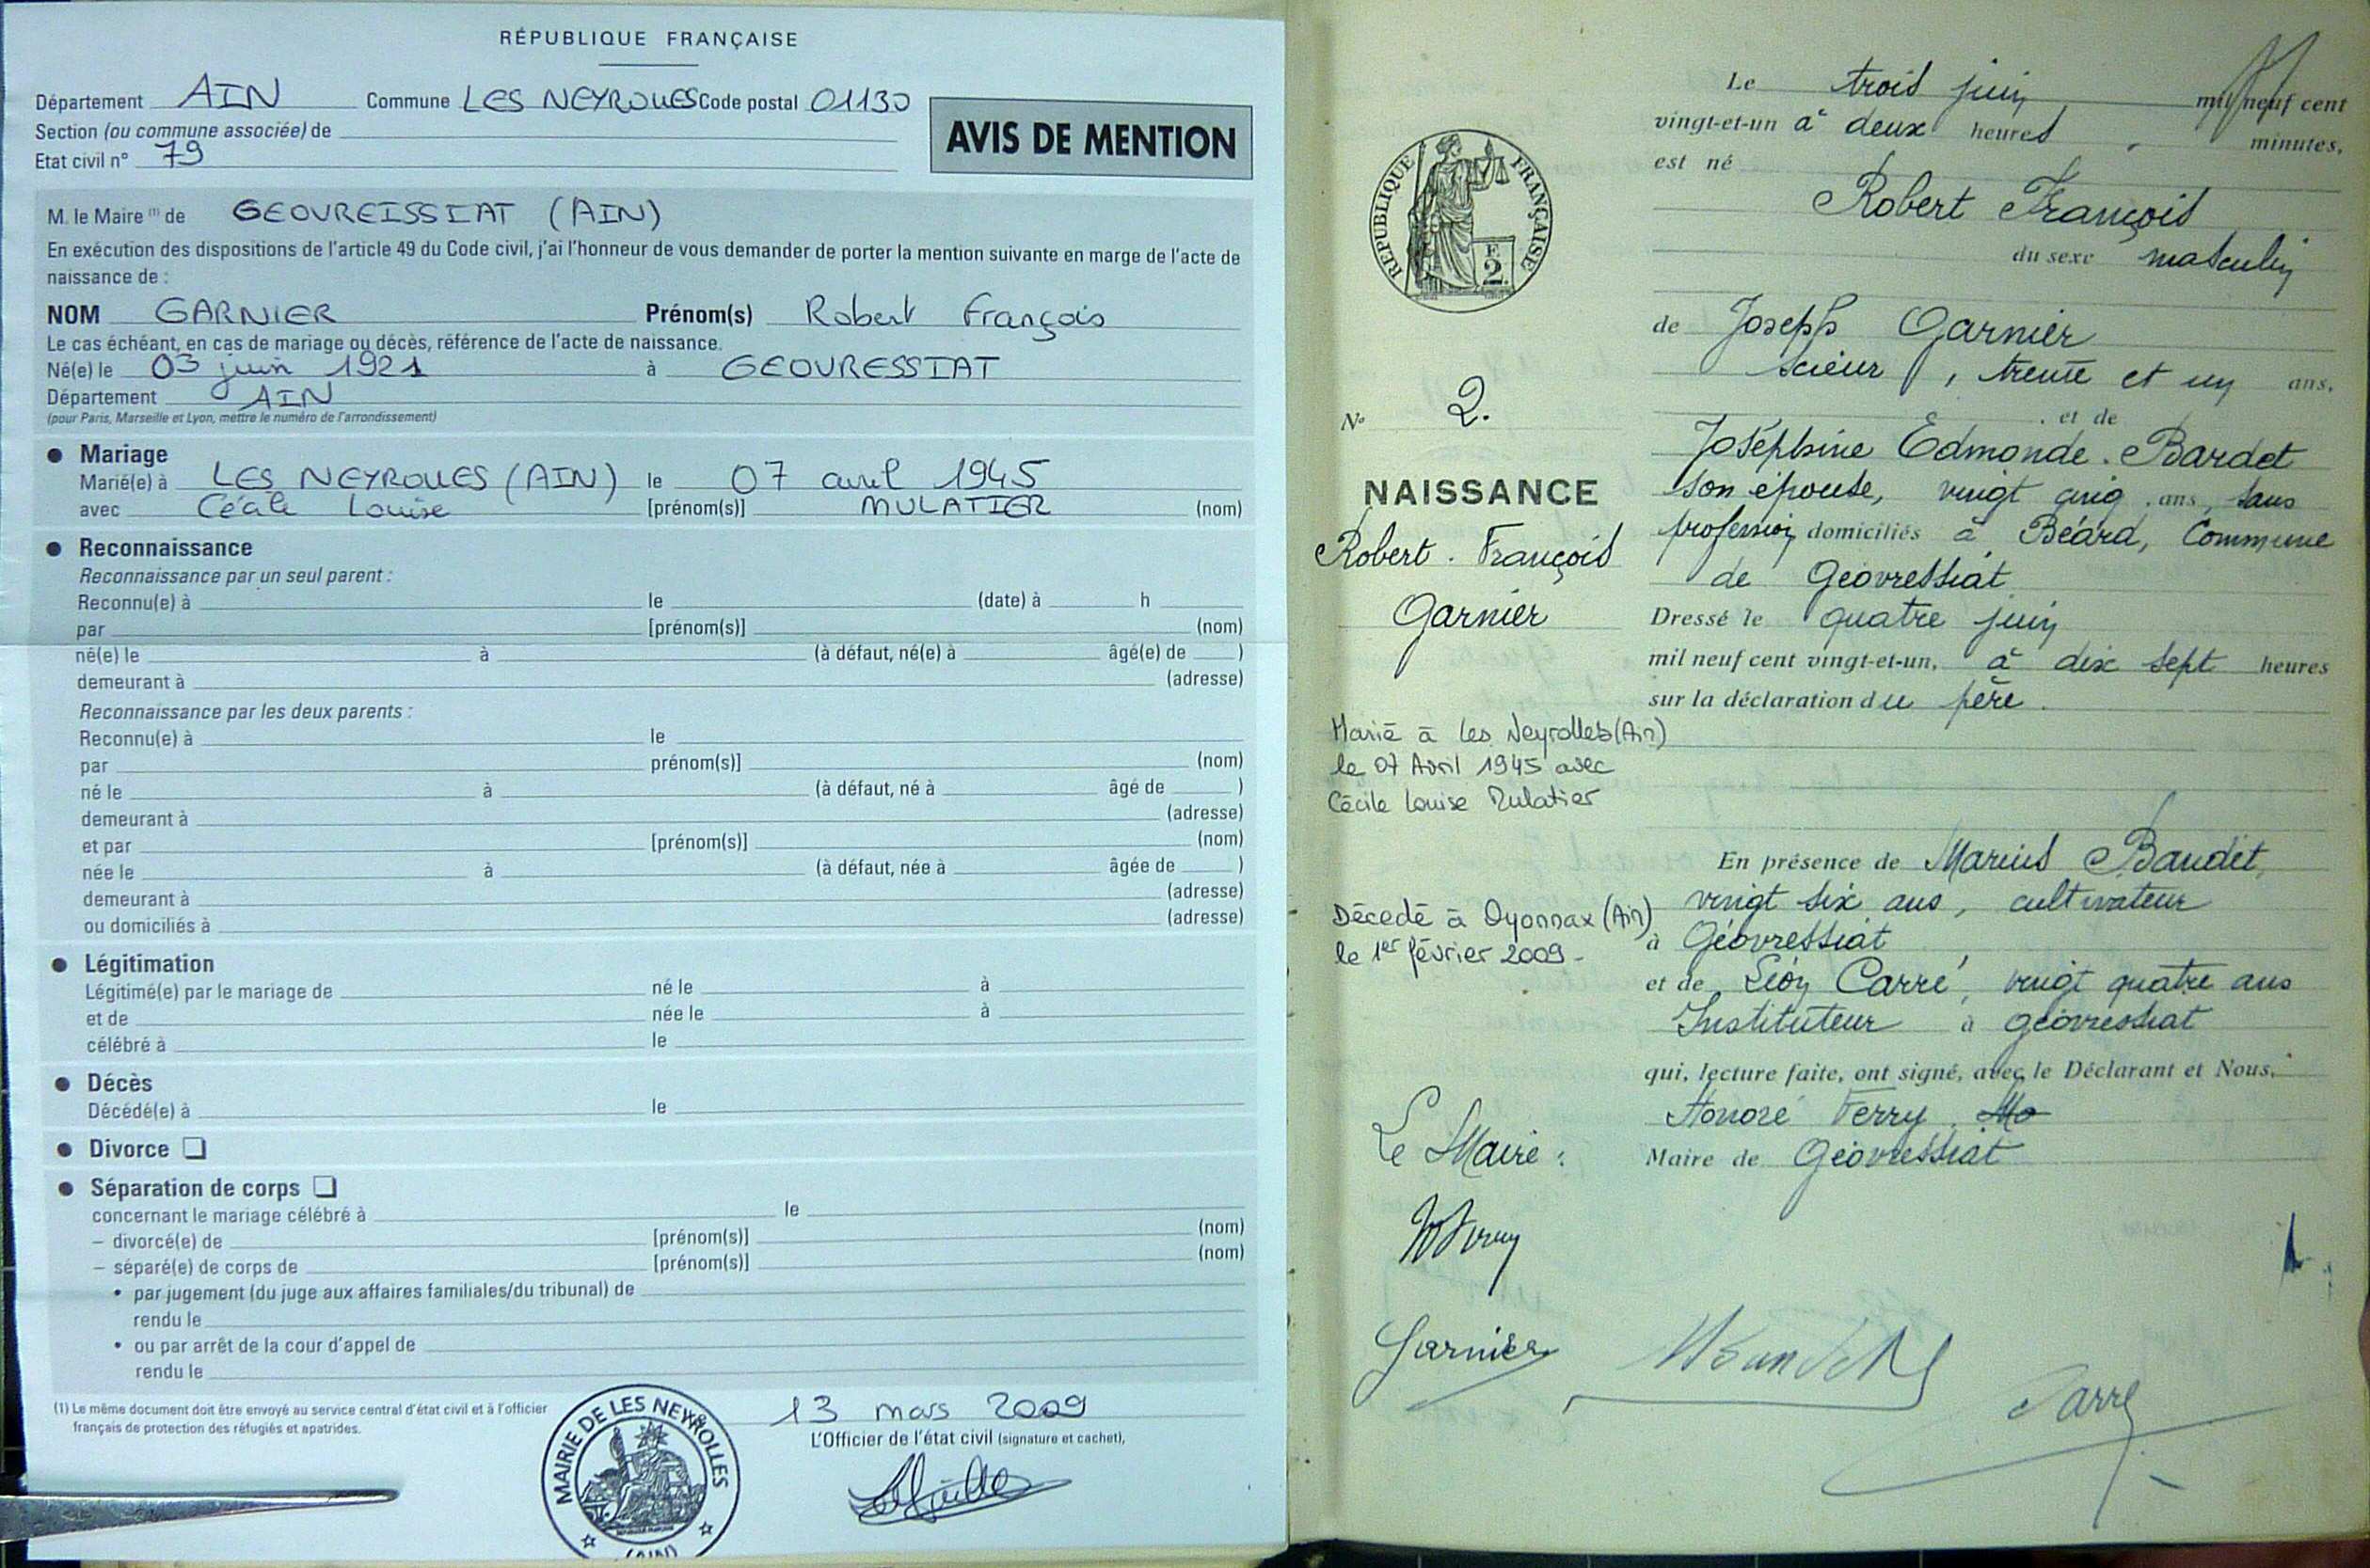 RÉPUBLIQUE FRANÇAISE
Département AIN Commune LES NEYROLLES Code postal 01130
Section (ou commune associée) de
Etat civil n° 79
AVIS DE MENTION
M. le Maire (1) de GEOVREISSIAT (AIN)
En exécution des dispositions de l'article 49 du Code civil, j'ai l'honneur de vous demander de porter la mention suivante en marge de l'acte de
naissance de :
NOM GARNIER Prénom(s) Robert François
Le cas échéant, en cas de mariage ou décès, référence de l'acte de naissance.
Né(e) le 03 juin 1921 à GEOVRESSIAT
Département AIN
(pour Paris, Marseille et Lyon, mettre le numéro de l'arrondissement)
● Mariage
Marié(e) à LES NEYROLLES (AIN) le 07 avril 1945
avec Cécile Louise [prénom(s)] MULATIER (nom)
● Reconnaissance
Reconnaissance par un seul parent :
Reconnu(e) à le (date) à h
par [prénom(s)] (nom)
né(e) le à (à défaut, né(e) à âgé(e) de )
demeurant à (adresse)
Reconnaissance par les deux parents :
Reconnu(e) à le
par prénom(s)] (nom)
né le à (à défaut, né à âgé de )
demeurant à (adresse)
et par [prénom(s)] (nom)
née le à (à défaut, née à âgée de )
demeurant à (adresse)
ou domiciliés à (adresse)
● Légitimation
Légitimé(e) par le mariage de né le à
et de née le à
célébré à le
● Décès
Décédé(e) à le
● Divorce ❏
● Séparation de corps ❏
concernant le mariage célébré à le
– divorcé(e) de [prénom(s)] (nom)
– séparé(e) de corps de [prénom(s)] (nom)
• par jugement (du juge aux affaires familiales/du tribunal) de
rendu le
• ou par arrêt de la cour d'appel de
rendu le
(1) Le même document doit être envoyé au service central d'état civil et à l'officier
français de protection des réfugiés et apatrides.
13 mars 2009
L'Officier de l'état civil (signature et cachet),
MAIRIE DE LES NEYROLLES
(AIN)
RÉPUBLIQUE FRANÇAISE
F
2
N° 2.
NAISSANCE
Robert. François
Garnier
Marié à Les Neyrolles (Ain)
le 07 Avril 1945 avec
Cécile Louise Mulatier
Décedé à Oyonnax (Ain)
le 1er février 2009 -
Le Maire :
Garnier
Le trois juin mil neuf cent
vingt-et-un à deux heures minutes,
est né
Robert François
du sexe masculin
de Joseph Garnier
scieur, trente et un ans,
et de
Joséphine Edmonde. Bardet
son épouse, vingt cinq ans, sans
profession domiciliés à Béard, Commune
de Géovressiat
Dressé le quatre juin
mil neuf cent vingt-et-un, à dix sept heures
sur la déclaration du père.
En présence de Marius Baudet,
vingt six ans, cultivateur
à Géovressiat,
et de Léon Carré, vingt quatre ans
Instituteur à Géovressiat
qui, lecture faite, ont signé, avec le Déclarant et Nous.
Honoré Ferry. Mo
Maire de Géovressiat
Carré